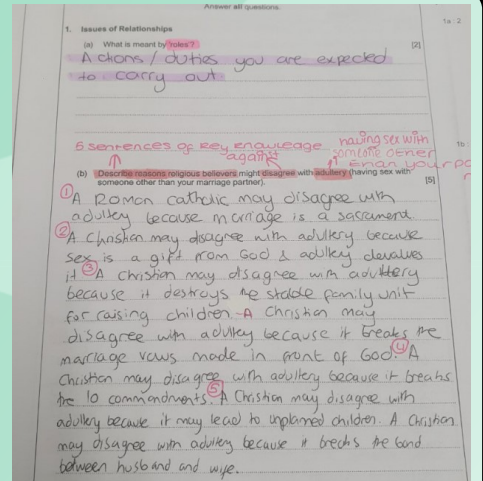 Answer all questions.
1a: 2
1. Issues of Relationships
(a) What is meant by 'roles'? [2]
Actions/duties you are expected
to carry out
5 sentences of key knowledge
against
having sex with
someone other
than your
1b:
(b) Describe reasons religious believers might disagree with adultery (having sex with
someone other than your marriage partner). [5]
① A Roman catholic may disagree with
adultery because marriage is a sacrament.
② A Christian may disagree with adultery because
sex is a gift from God & adultery devalues
it ③ A christian may disagree with adultery
because it destroys the stable family unit
for raising children. A Christian may
disagree with adultery because it breaks the
marriage vows made in front of God. ④ A
Christian may disagree with adultery because it breaks
the 10 commandments. ⑤ A Christian may disagree with
adultery because it may lead to unplanned children. A Christian
may disagree with adultery because it breaks the bond
between husband and wife.